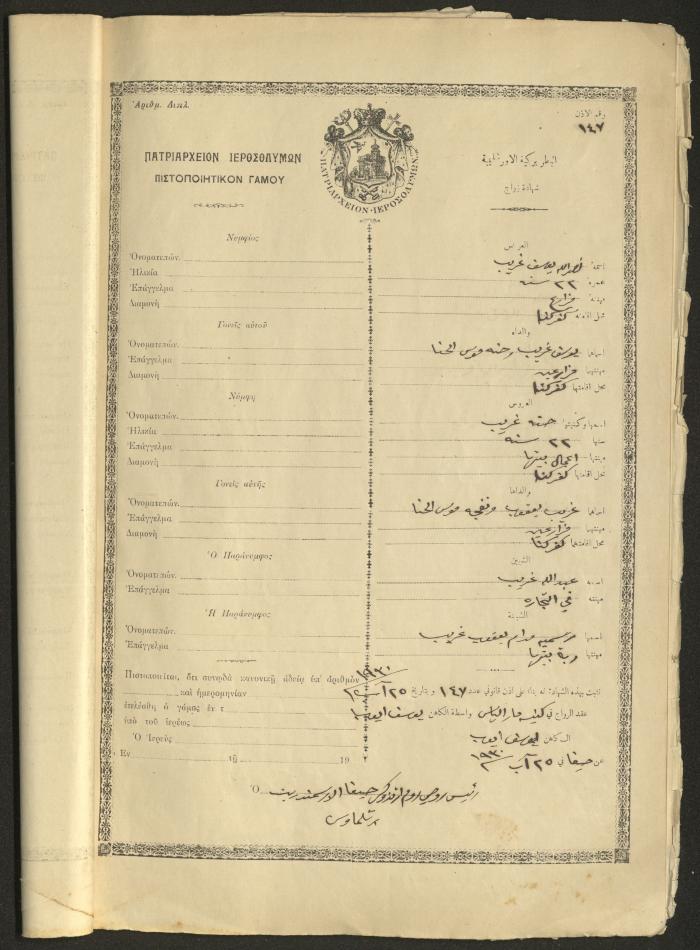 Ἀριθμ. Διπλ.
ΠΑΤΡΙΑΡΧΕΙΟΝ ΙΕΡΟΣΟΛΥΜΩΝ
ΠΙΣΤΟΠΟΙΗΤΙΚΟΝ ΓΑΜΟΥ
ΠΑΤΡΙΑΡΧΕΙΟΝ·ΙΕΡΟΣΟΛΥΜΩΝ
رقم الاذن
١٤٧
البطريركية الاورشليمية
شهادة زواج
Νυμφίος
Ὀνοματεπών.
Ἡλικία
Ἐπάγγελμα
Διαμονή
Γονεῖς αὐτοῦ
Ὀνοματεπών.
Ἐπάγγελμα
Διαμονή
Νύμφη
Ὀνοματεπών.
Ἡλικία
Ἐπάγγελμα
Διαμονή
Γονεῖς αὐτῆς
Ὀνοματεπών.
Ἐπάγγελμα
Διαμονή
Ὁ Παράνυμφος
Ὀνοματεπών.
Ἐπάγγελμα
Ἡ Παράνυμφος
Ὀνοματεπών.
Ἐπάγγελμα
Πιστοποιεῖται, ὅτι συνῳδὰ κανονικῇ ἀδείᾳ ὑπ' ἀριθμὸν
καὶ ἡμερομηνίαν
ἐτελέσθη ὁ γάμος ἐν τ
ὑπὸ τοῦ ἱερέως
Ὁ Ἱερεὺς
Ἐν τῇ 19
العريس
اسمه نصرالله يوسف غريب
عمره ٢٢ سنة
مهنته مزارع
محل اقامته كفركنا
والداه
اسماهما يوسف غريب وحنه موسى الحنا
مهنتهما مزارعين
محل اقامتهما كفركنا
العروس
اسمها وكنيتها حنه غريب
سنها ٢٢ سنه
مهنتها اعمال بيتها
محل اقامتها كفركنا
والداها
اسماهما غريب يعقوب موسى الحنا
مهنتهما مزارعين
محل اقامتهما كفركنا
الشبين
اسمه عبدالله غريب
مهنته في التجاره
الشبينة
اسمها مدام يعقوب غريب
مهنتها ربة بيتها
تثبت بهذه الشهادة انه بناء على اذن قانوني عدد ١٤٧ وبتاريخ ٢٥ آب ١٩٣٠
عقد الزواج في كنيسة مار الياس بواسطة الكاهن يوسف ايوب
الكاهن يوسف ايوب
عن حيفا في ٢٥ آب ١٩٣٠
Ὁ رئيس روحي روم ارثوذكس حيفا الارشمندريت